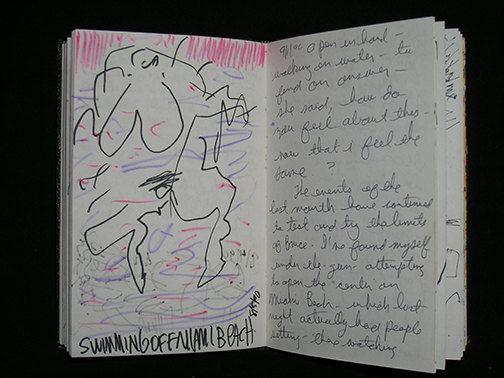 SWIMMING OFF MIAMI BEACH
a pen in hand -
walking on water - to
find an answer -
she said, how do
you feel about this -
now that I feel the
same ?
The events of the
last month have continued
to test and try the limits
of I've found myself
under the gun - attempting
to open the center on
Miami Beach - which last
night actually had people
sitting - there watching